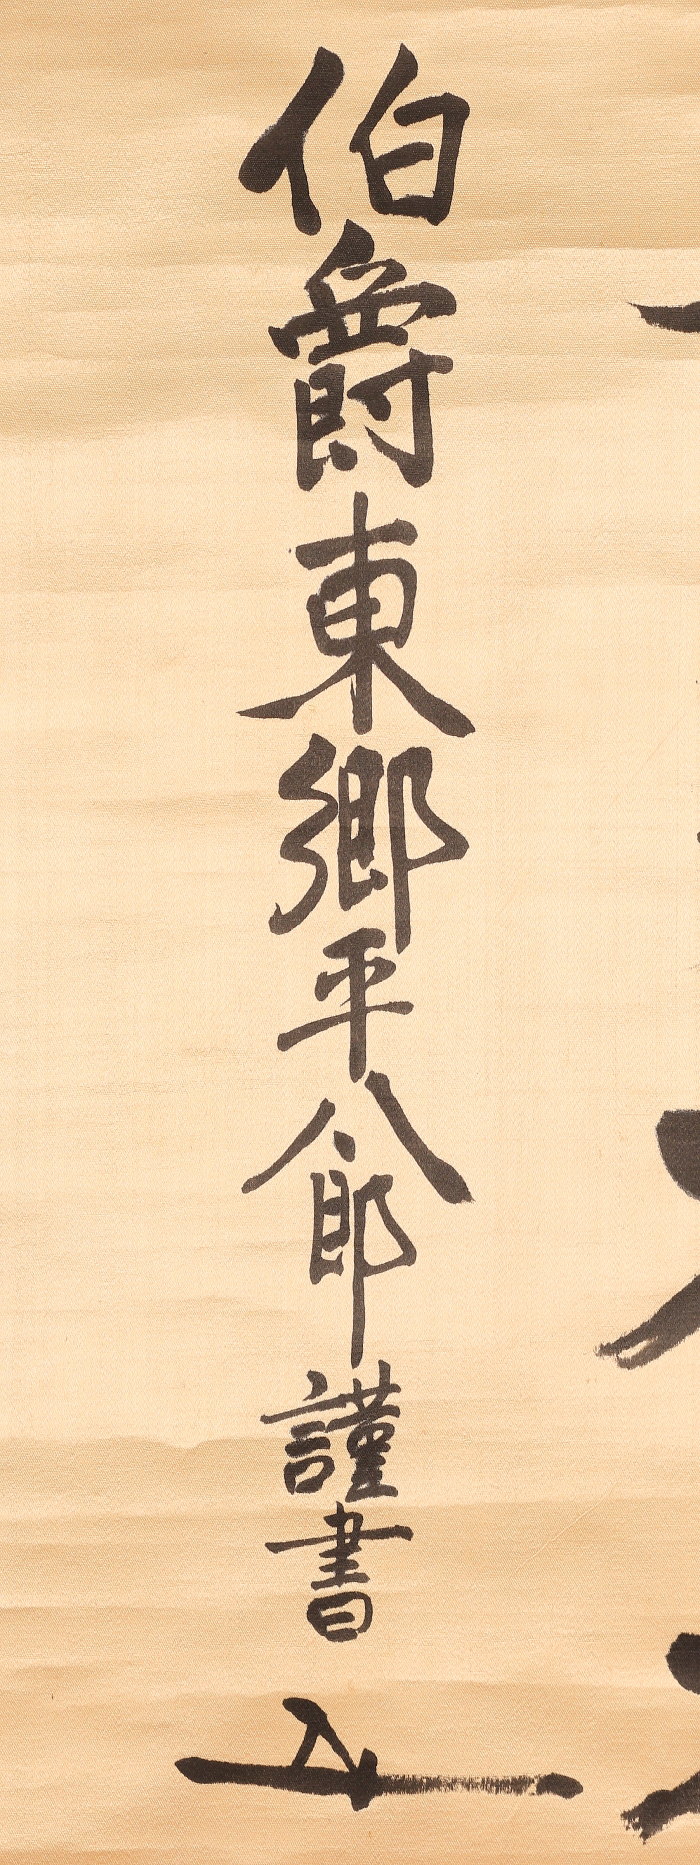 伯爵東郷平八郎謹書